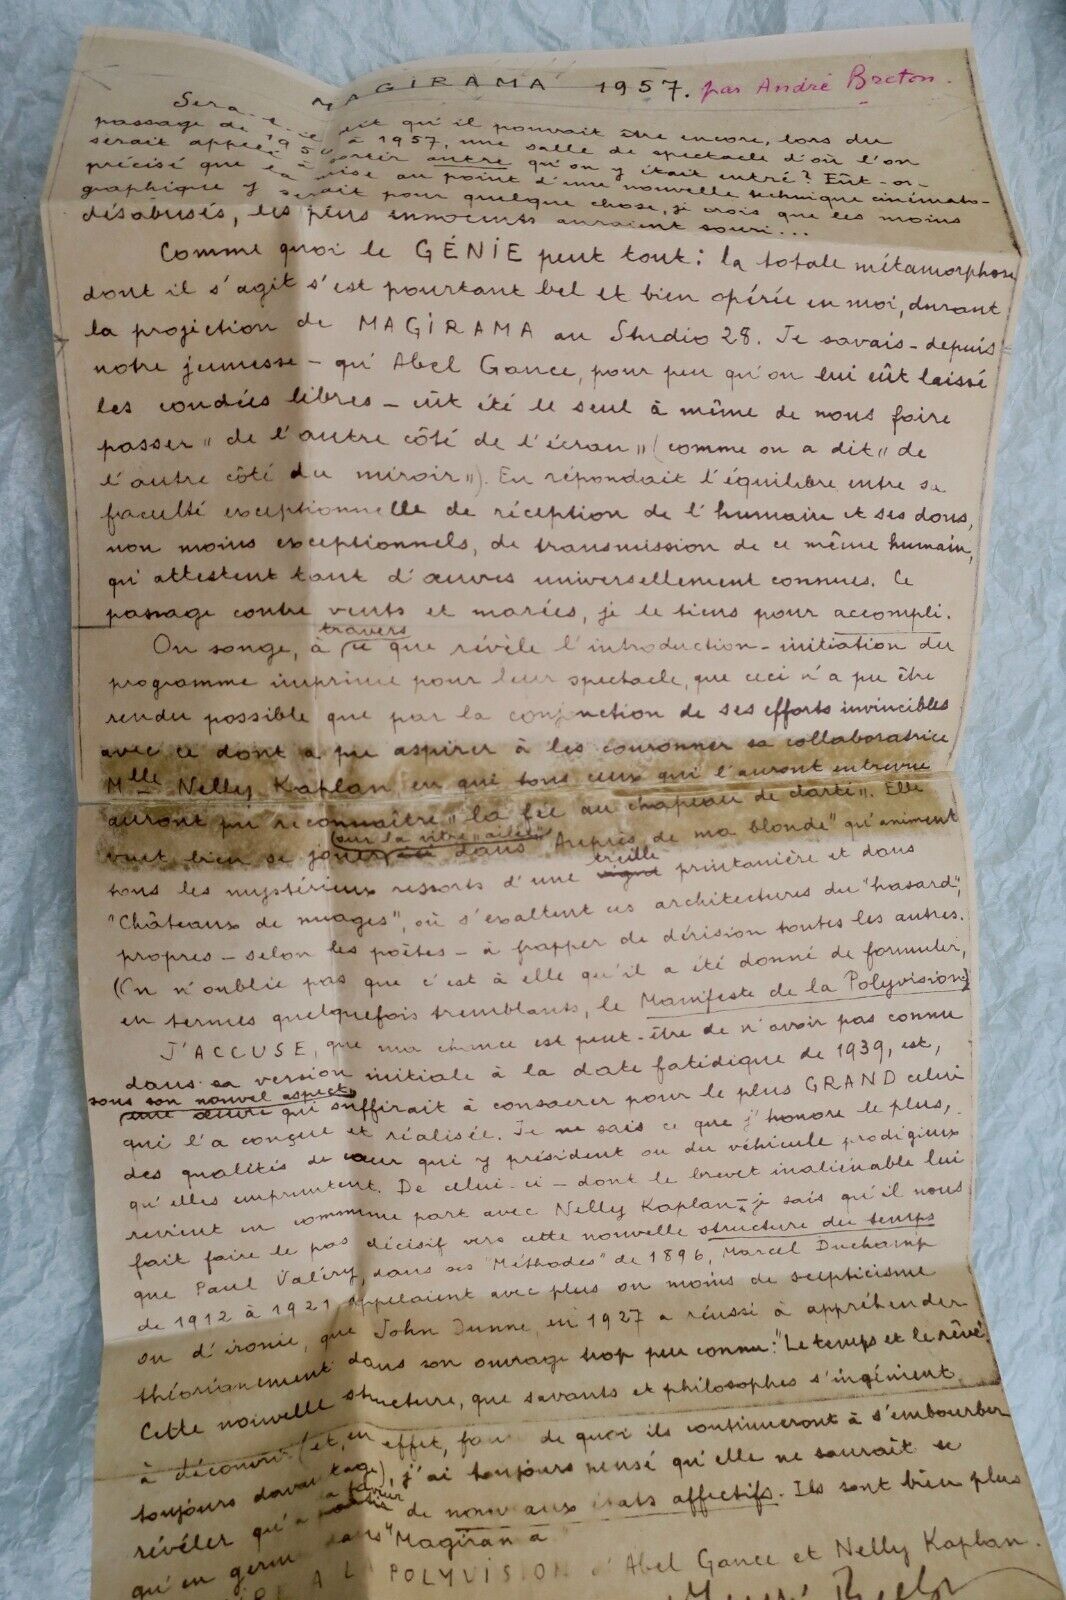 MAGIRAMA 1957. par André Breton.
Sera qu'il pouvait être encore, lors du
passage de 195 à 1957, une salle de spectacle d'où l'on
serait appelé à sortir autre qu'on y était entré? Eût-on
précisé que la mise au point d'une nouvelle technique cinémato-
graphique y serait pour quelque chose, je crois que les moins
désabusés, les plus innocents auraient souri...
Comme quoi le GÉNIE peut tout: la totale métamorphose
dont il s'agit s'est pourtant bel et bien opérée en moi, durant
la projection de MAGIRAMA au Studio 28. Je savais - depuis
notre jeunesse - qu'Abel Gance, pour peu qu'on lui eût laissé
les coudées libres - eût été le seul à même de nous faire
passer "de l'autre côté de l'écran" (comme on a dit "de
l'autre côté du miroir"). En répondait l'équilibre entre sa
faculté exceptionnelle de réception de l'humain et ses dons,
non moins exceptionnels, de transmission de ce même humain,
qu'attestent tant d'œuvres universellement connues. Ce
passage contre vents et marées, je le tiens pour accompli.
travers
On songe, à ce que révèle l'introduction-initiation du
programme imprimé pour leur spectacle, que ceci n'a pu être
rendu possible que par la conjonction de ses efforts invincibles
avec ce dont a pu aspirer à les couronner sa collaboratrice
Mlle Nelly Kaplan en qui tous ceux qui l'auront entrevue
auront pu reconnaître "la fée au chapeau de clarté". Elle
sur la vitre "ailée"
veut bien se jouer dans "Auprès de ma blonde" qu'animent
treille
tous les mystérieux ressorts d'une vigne printanière et dans
"Châteaux de nuages", où s'exaltent ces architectures du "hasard",
propres - selon les poètes - à frapper de dérision toutes les autres.
(On n'oublie pas que c'est à elle qu'il a été donné de formuler,
en termes quelquefois tremblants, le Manifeste de la Polyvision)
J'ACCUSE, que ma chance est peut-être de n'avoir pas connu
dans sa version initiale à la date fatidique de 1939, est,
sous son nouvel aspect
une œuvre qui suffirait à consacrer pour le plus GRAND celui
qui l'a conçue et réalisée. Je ne sais ce que j'honore le plus,
des qualités de cœur qui y président ou du véhicule prodigieux
qu'elles empruntent. De celui-ci - dont le brevet inaliénable lui
revient en commune part avec Nelly Kaplan - je sais qu'il nous
fait faire le pas décisif vers cette nouvelle structure du temps
que Paul Valéry, dans ses "Méthodes" de 1896, Marcel Duchamp
de 1912 à 1921 appelaient avec plus ou moins de scepticisme
ou d'ironie, que John Dunne, en 1927 a réussi à appréhender
théoriquement dans son ouvrage trop peu connu: "Le temps et le rêve".
Cette nouvelle structure, que savants et philosophes s'ingénient
à découvrir (et, en effet, faute de quoi ils continueront à s'embourber
toujours davantage), j'ai toujours pensé qu'elle ne saurait se
à favoir
révéler qu'à de nouveaux états affectifs. Ils sont bien plus
qu'en germe dans "Magirama"
A LA POLYVISION d'Abel Gance et Nelly Kaplan.
André Breton